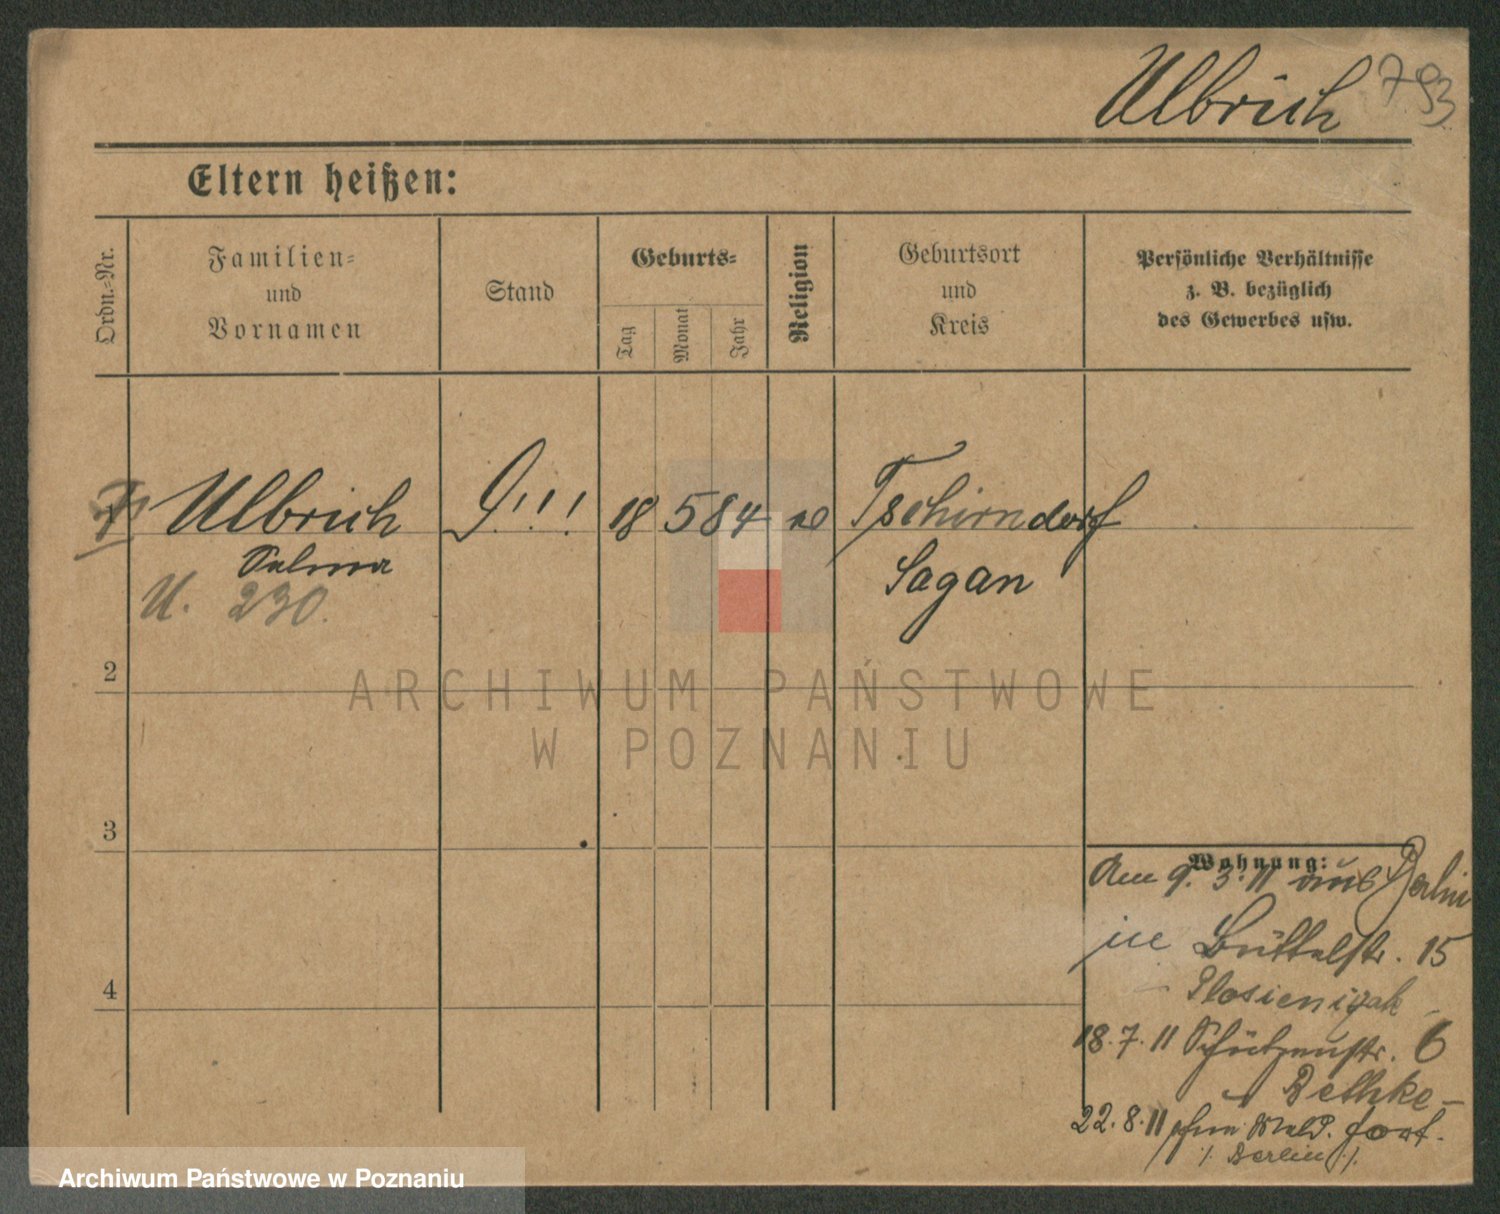 Ulbrich 793
Eltern heißen:
Ordn.-Nr.
Familien-
und
Vornamen
Stand
Geburts-
Tag
Monat
Jahr
Religion
Geburtsort
und
Kreis
Persönliche Verhältnisse
z. B. bezüglich
des Gewerbes usw.
Ulbrich
Selma
U. 230.
!!!
18 5 84
Tschirndorf
Sagan
2
3
4
ARCHIWUM PAŃSTWOWE
W POZNANIU
Wohnung:
Am 9.3.11 aus Berlin
in Büttelstr. 15
18.7.11 Schützenstr. 6
Bethke
22.8.11 ohne Meld. fort.
Berlin
Archiwum Państwowe w Poznaniu